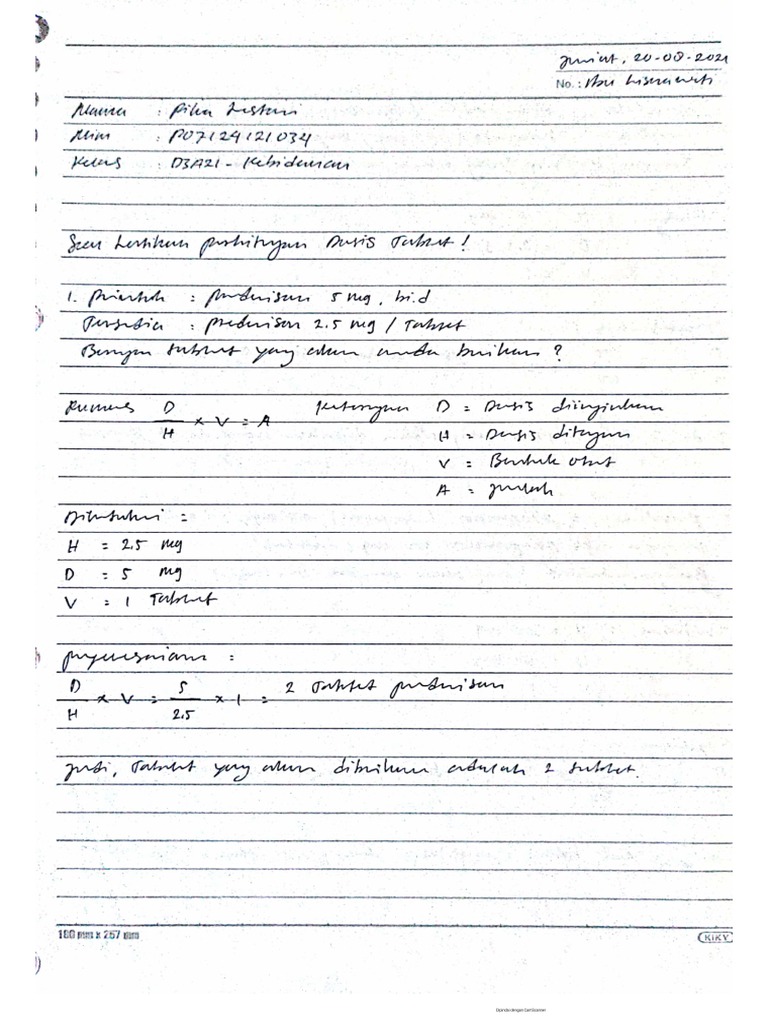 Jum'at, 20-08-2021
No. : Ibu Lisnawati
Nama : Pika Lestari
Nim : P07124121034
Kelas : D3A21 - Kebidanan
Soal Latihan perhitungan Dosis Tablet !
1. Perintah : prednison 5 mg, bi.d
Tersedia : prednison 2.5 mg / Tablet
Berapa tablet yang akan anda berikan ?
Rumus D/H × V = A Keterangan D = Dosis diinginkan
H = Dosis ditangan
V = Bentuk obat
A = Jumlah
Diketahui :
H = 2.5 mg
D = 5 mg
V = 1 Tablet
penyelesaian :
D/H × V = 5/2.5 × 1 = 2 Tablet prednison
Jadi, Tablet yang akan diberikan adalah 2 tablet.
180 mm x 257 mm
KIKY
Dipindai dengan CamScanner